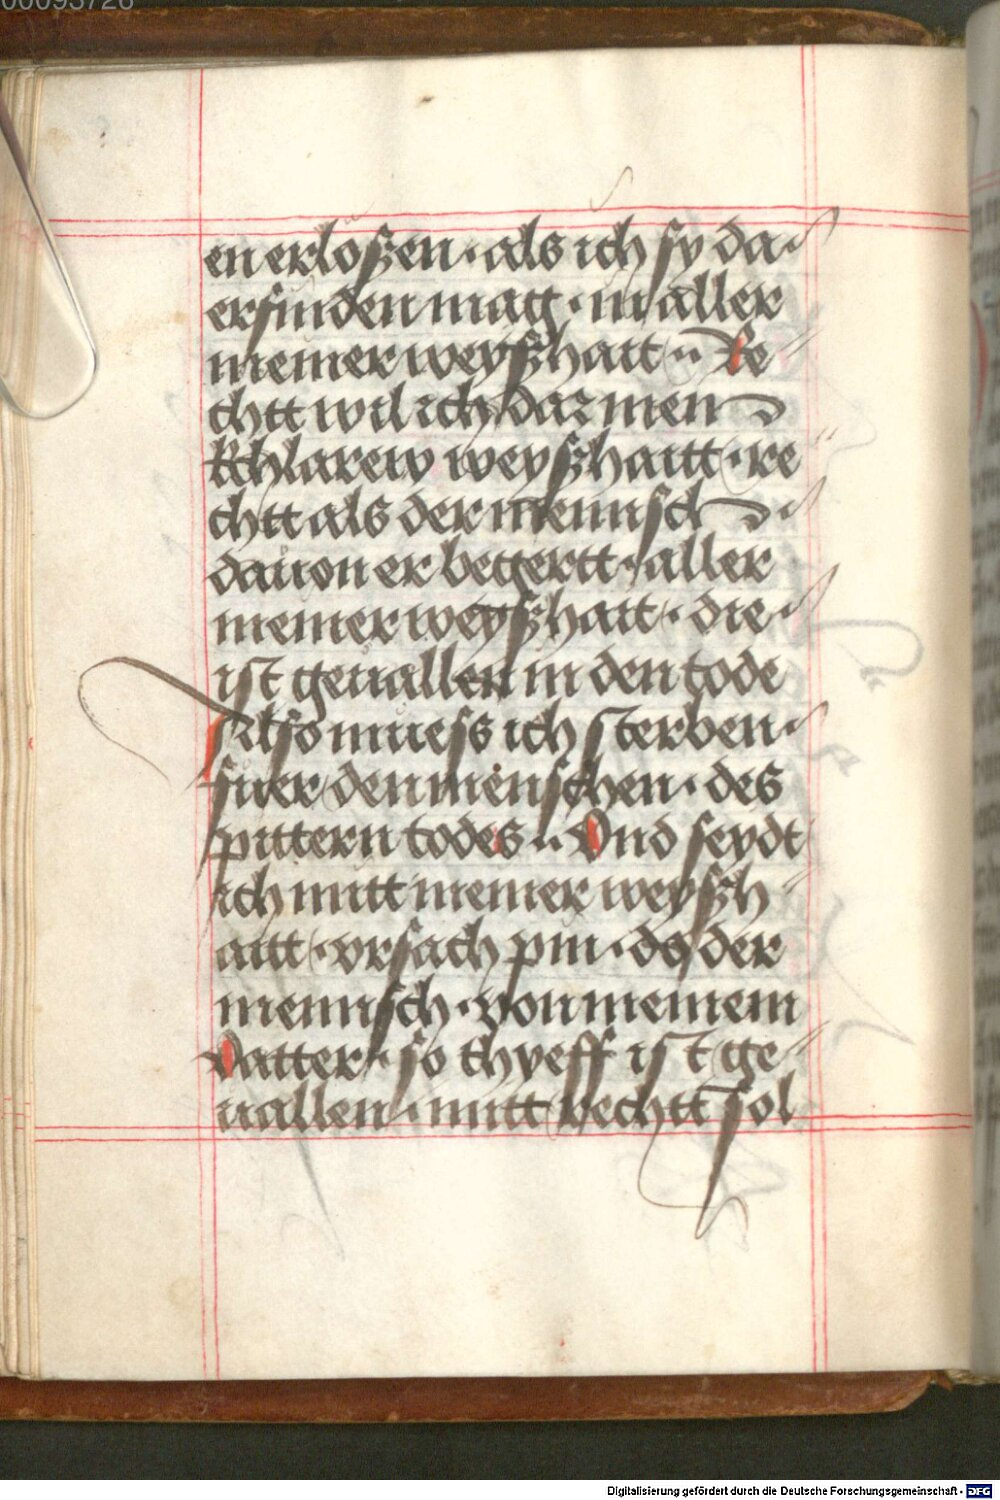 00093726
en erloßen · als ich sy da
erfinden mag · in aller
meiner weyßhait ·· Re
chtt wil ich dar men
kchlarew weyßhaitt · re
chtt als der mennsch
dauon er begertt · aller
meiner weyßhait · die
ist geuallen in den tode
Also muess ich sterben ·
fuer den menschen · des
pittern todes ·· Vnd seydt
ich mitt meiner weyßh
aitt · vrsach pin · do der
mennsch · von meinem
Vatter · so thyeff ist ge
uallen · mitt Rechtt sol
Digitalisierung gefördert durch die Deutsche Forschungsgemeinschaft - DFG